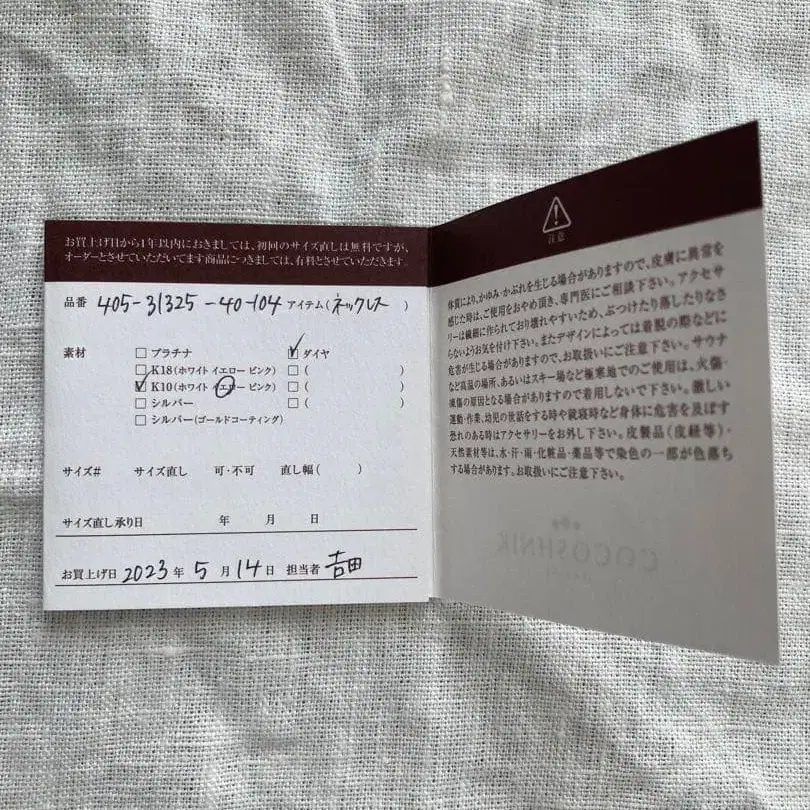 お買上げ日から1年以内におきましては、初回のサイズ直しは無料ですが、
オーダーとさせていただいてます商品につきましては、有料とさせていただきます。
品番 405-31325-40-104 アイテム(ネックレス)
素材 □プラチナ ☑ダイヤ
□K18(ホワイト イエロー ピンク) □( )
☑K10(ホワイト イエロー ピンク) □( )
□シルバー □( )
□シルバー(ゴールドコーティング)
サイズ# サイズ直し 可・不可 直し幅( )
サイズ直し承り日 年 月 日
お買上げ日 2023年 5月 14日 担当者 吉田
注意
体質により、かゆみ・かぶれを生じる場合がありますので、皮膚に異常を
感じた時は、ご使用をおやめ頂き、専門医にご相談下さい。アクセサ
リーは繊細に作られており壊れやすいため、ぶつけたり落したりなさ
らないようお気を付け下さい。またデザインによっては着脱の際などに
危害が生じる場合がありますので、お取扱いにご注意下さい。サウナ
など高温の場所、あるいはスキー場など極寒地でのご使用は、火傷・
凍傷の原因となる場合がありますので着用しないで下さい。激しい
運動・作業、幼児の世話をする時や就寝時など身体に危害を及ぼす
恐れのある時はアクセサリーをお外し下さい。皮製品(皮紐等)・
天然素材等は、水・汗・雨・化粧品・薬品等で染色の一部が色落ち
する場合があります。お取扱いにご注意下さい。
COCOSHNIK